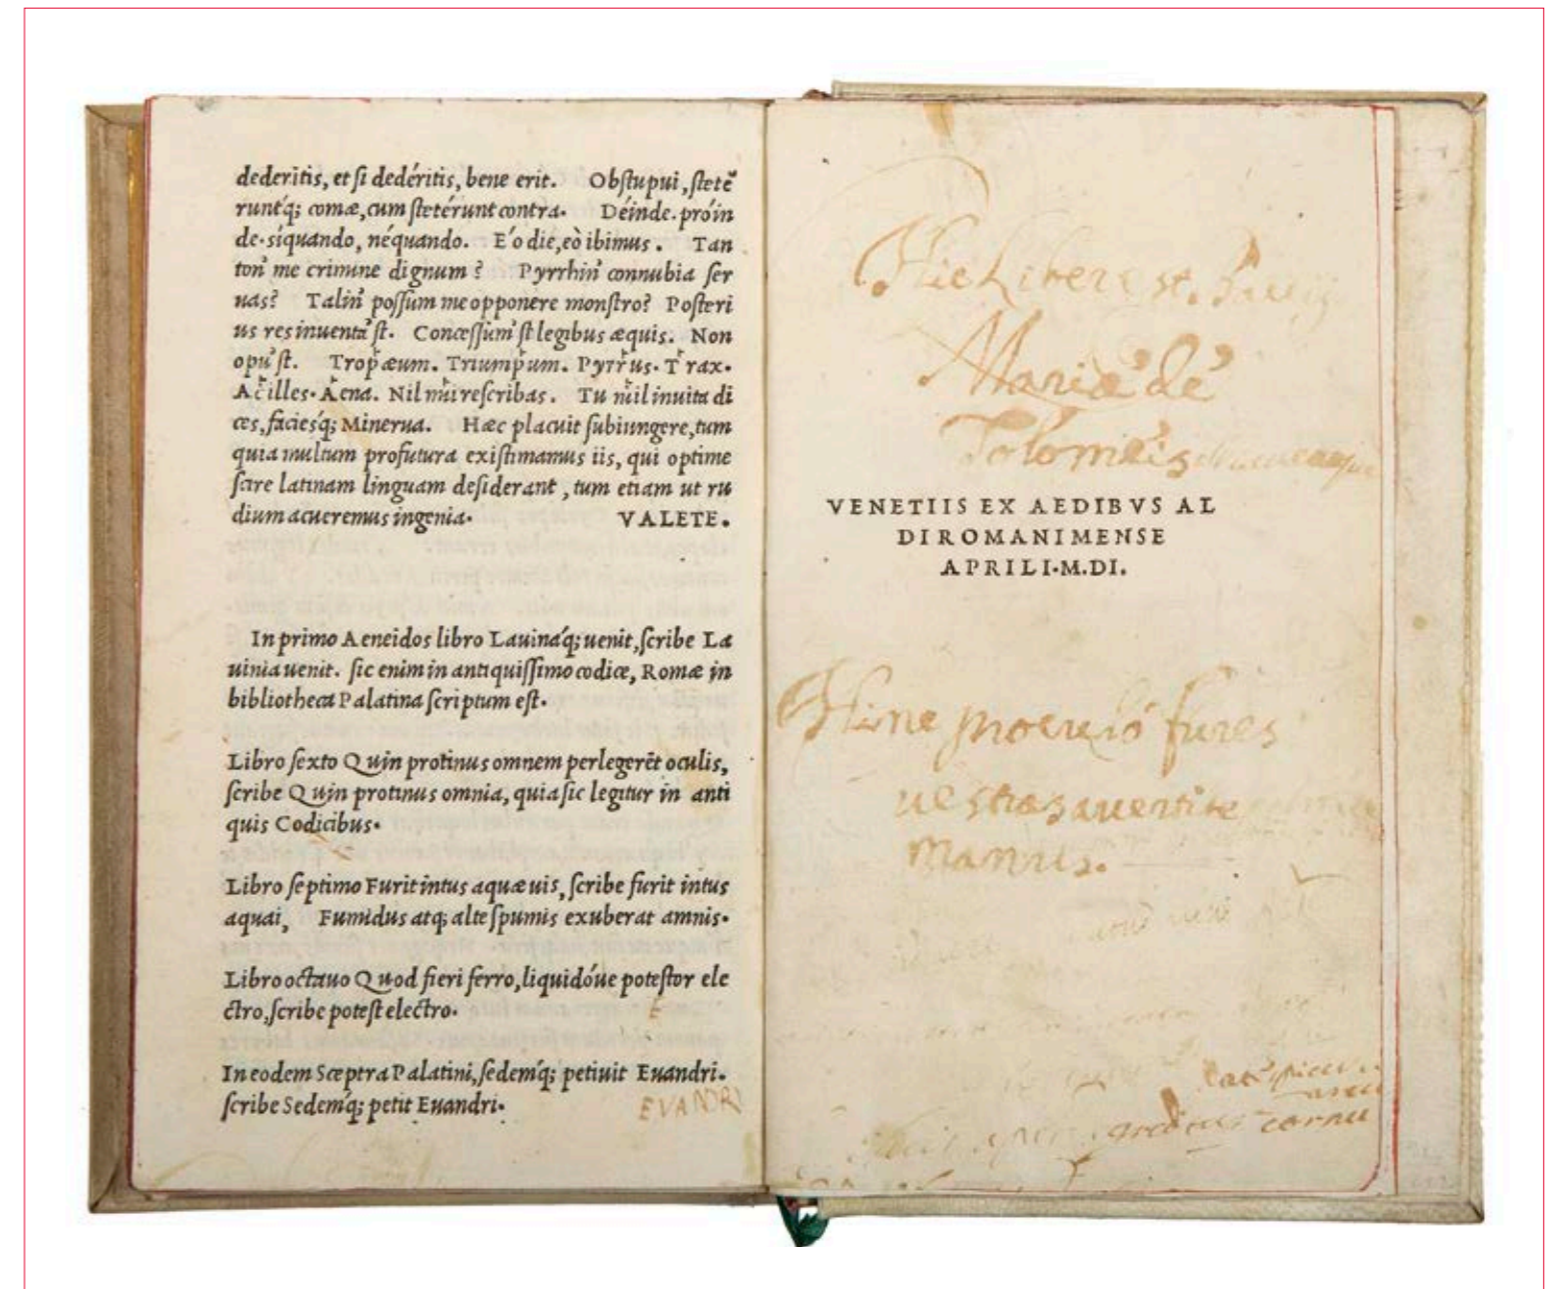 dederitis, et ſi dedéritis, bene erit. Obſtupui, ſtetē
runtq́; comæ, cum ſtetérunt contra. Déinde. próin
de. síquando, néquando. E´o die, eò ibimus. Tan
ton' me crimine dignum? Pyrrhin' connubia ſer
uas? Talin' poſſum me opponere monſtro? Poſteri
us res inuenta'ſt. Conceſſum'ſt legibus æquis. Non
opu'ſt. Tropæum. Triumpum. Pyrrus. Trax.
Acilles. Aena. Nil mi reſcribas. Tu nil inuita di
ces, faciesq́; Minerua. Hæc placuit ſubiungere, tum
quia multum profutura exiſtimamus iis, qui optime
ſcire latinam linguam deſiderant, tum etiam ut ru
dium acueremus ingenia. VALETE.
In primo Aeneidos libro Lauinaq́; uenit, ſcribe La
uinia uenit. ſic enim in antiquiſſimo codice, Romæ in
bibliotheca Palatina ſcriptum eſt.
Libro ſexto Quin protinus omnem perlegerēt oculis,
ſcribe Quin protinus omnia, quia ſic legitur in anti
quis Codicibus.
Libro ſeptimo Furit intus aquæ uis, ſcribe furit intus
aquai, Fumidus atq; alte ſpumis exuberat amnis.
Libro octauo Quod fieri ferro, liquidóue poteſtor ele
ctro, ſcribe poteſt electro.
E
In eodem Sceptra Palatini, ſedemq́; petiuit Euandri.
ſcribe Sedemq́; petit Euandri.
EVANDRI
Hic Liber est
Mariæ de
Tolomeis
VENETIIS EX AEDIBVS AL
DI ROMANI MENSE
APRILI. M.DI.
Hinc procul ò fures
uestras auertite
manus.
cornu